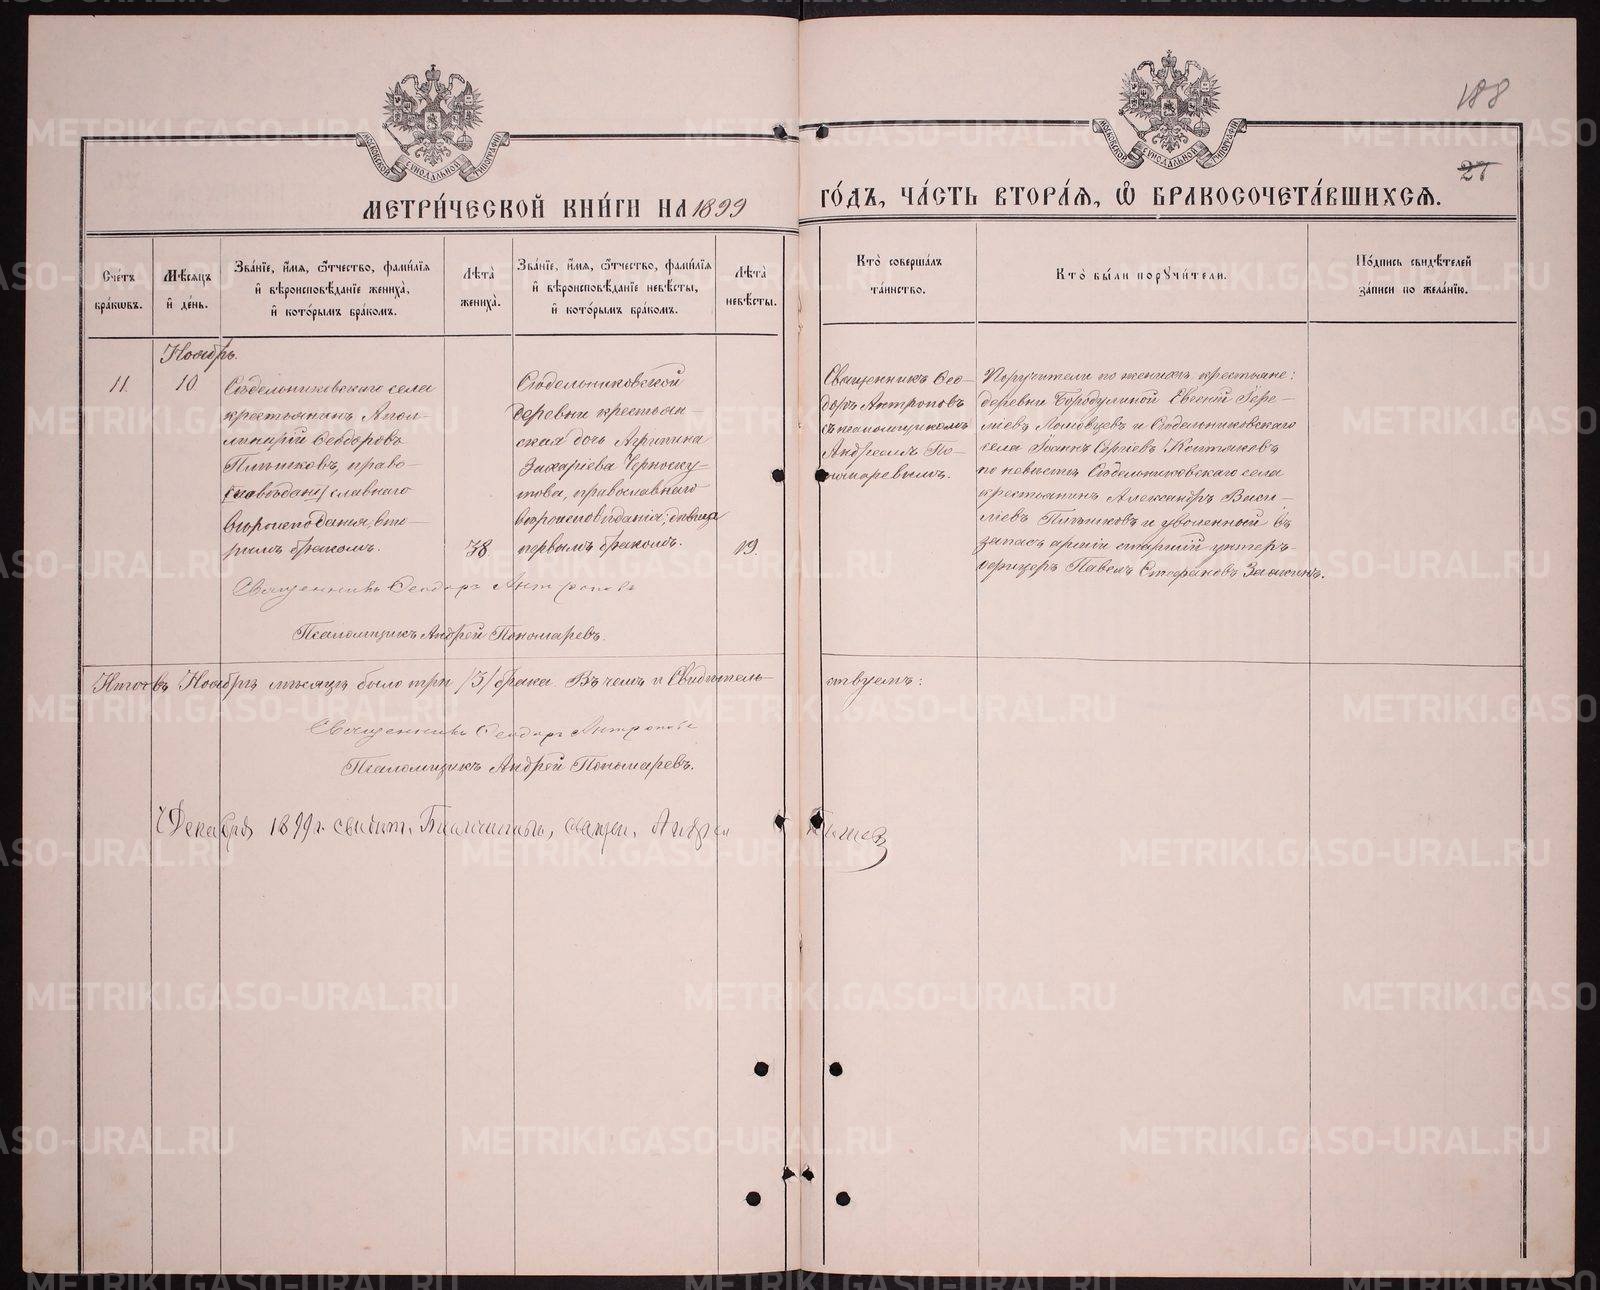 188
27
МОСКОВСКОЙ СѴНОДАЛЬНОЙ ТИПОГРАФІИ
МОСКОВСКОЙ СѴНОДАЛЬНОЙ ТИПОГРАФІИ
МЕТРИ́ЧЕСКОЙ КНИ́ГИ НА 1899
ГО́ДЪ, ЧА́СТЬ ВТОРА́Ѧ, Ѽ БРАКОСОЧЕТА́ВШИХСѦ.
Сче́тъ
бра́кѡвъ.
Мѣ́сяцъ
и҆ де́нь.
Зва́нїе, и҆́мѧ, ѻ҆́тчество, фами́лїѧ
и҆ вѣроисповѣ́данїе жениха̀,
и҆ кото́рымъ бра́комъ.
Лѣ́та
жениха̀.
Зва́нїе, и҆́мѧ, ѻ҆́тчество, фами́лїѧ
и҆ вѣроисповѣ́данїе невѣ́сты,
и҆ кото́рымъ бра́комъ.
Лѣ́та
невѣ́сты.
Кто̀ соверша́лъ
та́инство.
Кто̀ бы́ли порꙋчи́тели.
По́дпись свидѣ́телей
за́писи по жела́нїю.
Ноябрь.
11.
10
Сюдельниковскаго села
крестьянинъ Апол-
линарій Ѳеодоровъ
Плѣшковъ, право-
славнаго
вѣроисповѣданія, вто-
рымъ бракомъ.
38
Сюдельниковской
деревни крестьян-
ская дочь Агрипина
Захаріева Черноску-
това, православнаго
вѣроисповѣданія, дѣвица
первымъ бракомъ.
19.
Священникъ Ѳео-
доръ Антроповъ
съ псаломщикомъ
Андреемъ По-
номаревымъ.
Поручители по женихѣ крестьяне:
деревни Бородулиной Евгеній
и Сюдельниковскаго
села Іоаннъ Сергіевъ
по невѣстѣ Сюдельниковскаго села
крестьянинъ Александръ Васи-
ліевъ Плѣшковъ и уволенный въ
запасъ арміи старшій унтеръ-
офицеръ Павелъ Стефановъ
Священникъ Ѳеодоръ Антроповъ
Псаломщикъ Андрей Пономаревъ.
Итого въ Ноябрѣ мѣсяцѣ было три /3/ брака. Въ чемъ и Свидѣтель-
ствуемъ:
Священникъ Ѳеодоръ Антроповъ
Псаломщикъ Андрей Пономаревъ.
Декабря 1899 г. свидѣт. Благочинный, свящ. Андрей
METRIKI.GASO-URAL.RU